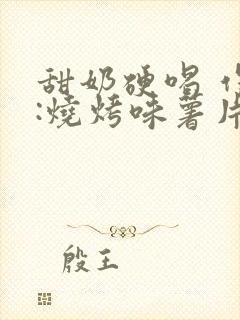 甜奶硬唱
:燒烤味薯片
殷王